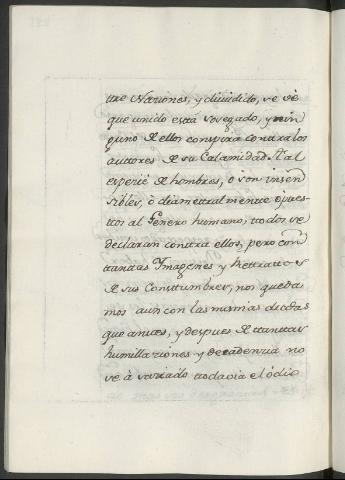 tre Naziones, y dividido, se vè
que unido está sosegado, y nin
guno de ellos conspira contra los
auttores de su Calamidad. Tal
especiè de hombres, ò son insen
sibles, ò diamettralmente òpues-
ttos al Genero humano; ttodos se
declaran conttra ellos, pero con
ttanttas Ymagenes y Rettrattos
de sus Consttumbres, nos queda
mos aun con las mismas dudas
que anttes, y despues de ttanttas
humillaziones y decadenzia no
se à variado ttodavia el òdio